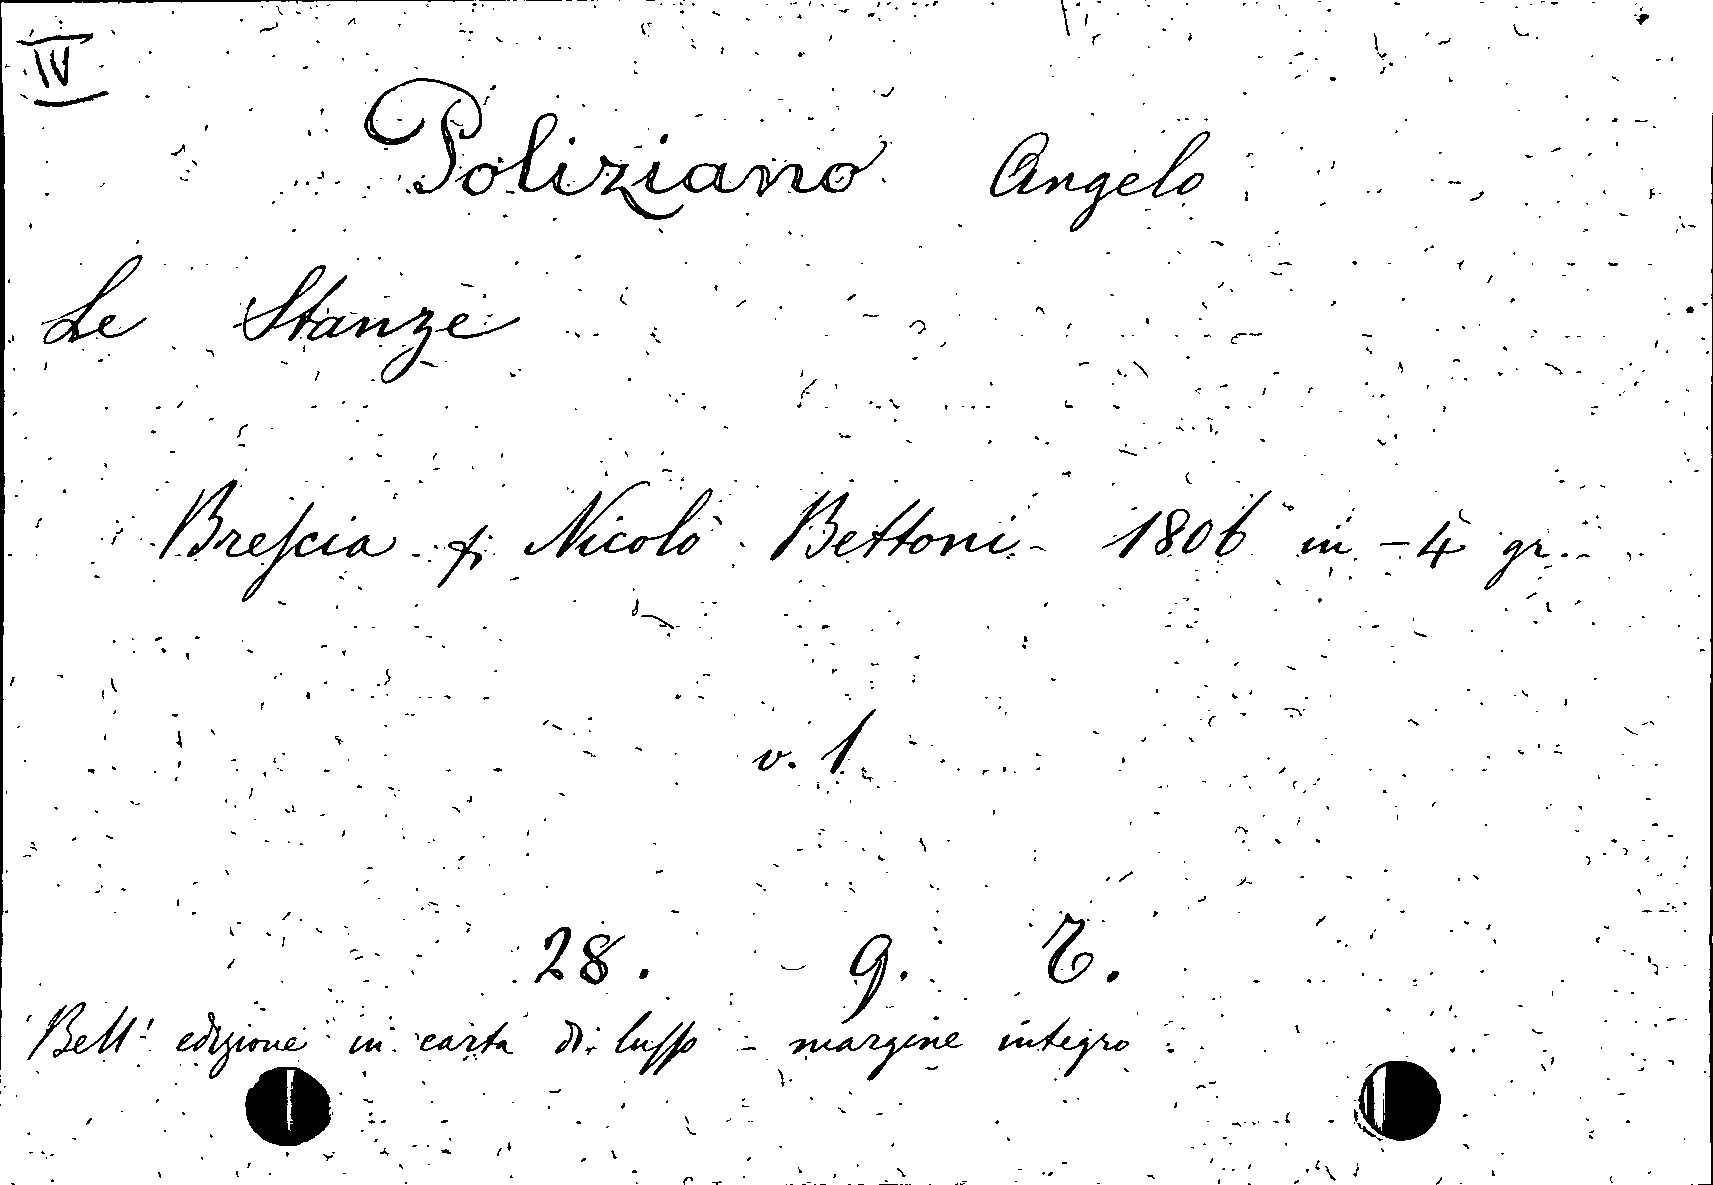 IV
Poliziano Angelo
Le Stanze
Brescia Nicolò Bettoni - 1806 in-4 gr.
v. 1
28. 9. T.
Bell' edizione in carta di lusso - margine integro